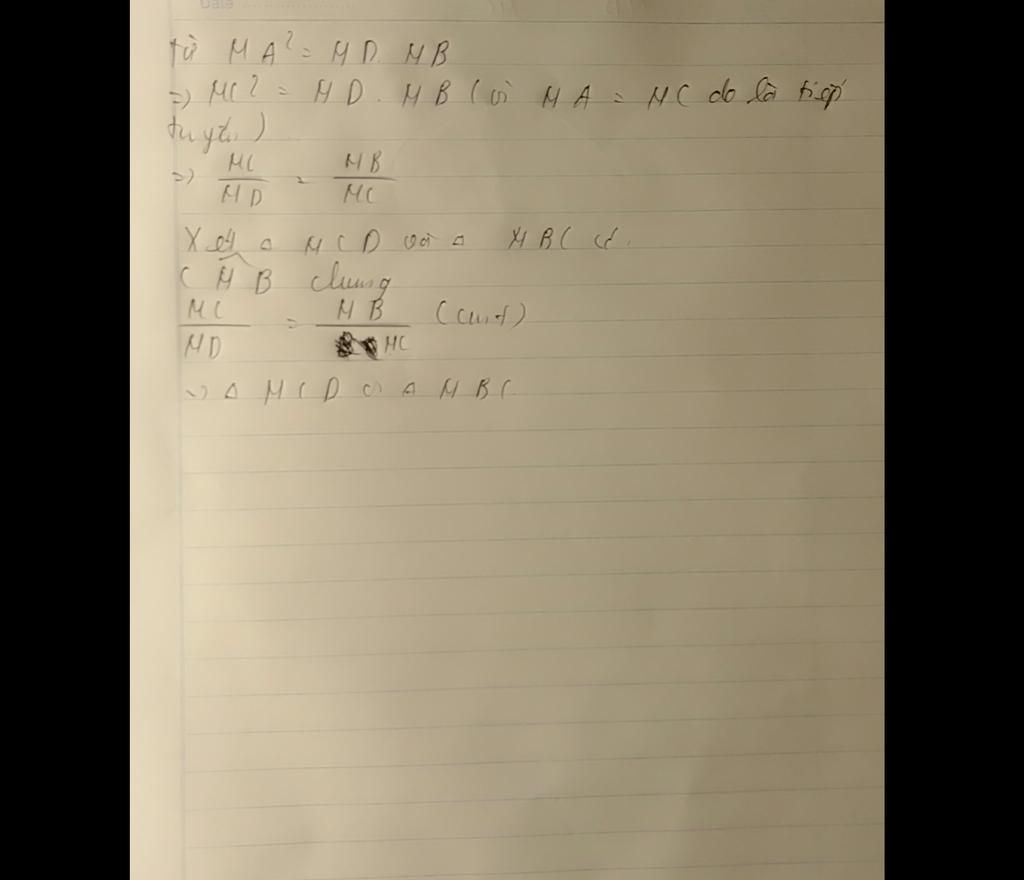 Date
từ MA² = MD. MB
=> MC² = MD. MB (vì MA = MC do là tiếp
tuyến)
=> MC/MD = MB/MC
Xét △ MCD và △ MBC có.
CMB chung
MC/MD = MB/MC (cmt)
=> △ MCD ∽ △ MBC